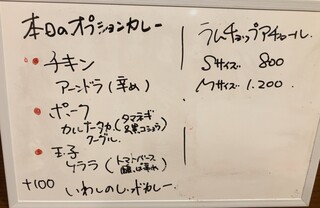 本日のオプションカレー
チキン
アーンドラ(辛め)
ポーク
カルナータカ(タマネギ
クーグル。
玉子
ケララ(トマトベース
+100
いわしのレッドカレー
ラムチョップアチャール。
Sサイズ 800
Mサイズ 1.200.